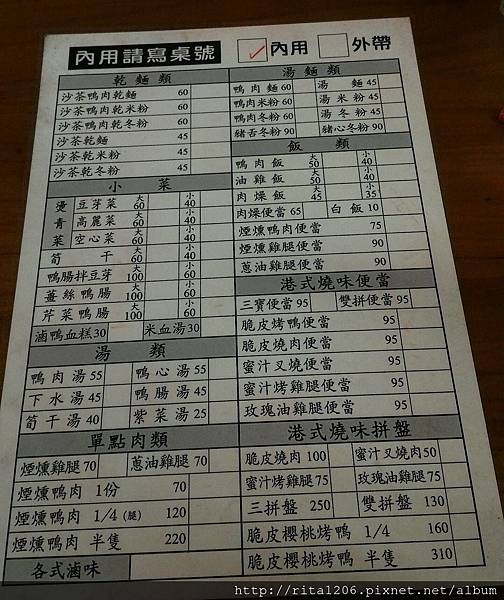 內用請寫桌號 ✓內用 外帶
乾麵類
沙茶鴨肉乾麵 60
沙茶鴨肉乾米粉 60
沙茶鴨肉乾冬粉 60
沙茶乾麵 45
沙茶乾米粉 45
沙茶乾冬粉 45
小菜
燙青菜 豆芽菜 大60 小40
高麗菜 大60 小40
空心菜 大60 小40
筍干 大60 小40
鴨腸拌豆芽 大100 小60
薑絲鴨腸 大100 小60
芹菜鴨腸 大100 小60
滷鴨血糕30 米血湯30
湯類
鴨肉湯55 鴨心湯55
下水湯45 鴨腸湯45
筍干湯40 紫菜湯25
單點肉類
煙燻雞腿70 蔥油雞腿70
煙燻鴨肉 1份 70
煙燻鴨肉 1/4(腿) 120
煙燻鴨肉 半隻 220
各式滷味
湯麵類
鴨肉麵60 湯麵45
鴨肉米粉60 湯米粉45
鴨肉冬粉60 湯冬粉45
豬舌冬粉90 豬心冬粉90
飯類
鴨肉飯 大50 小40
油雞飯 大50 小40
肉燥飯 大45 小35
肉燥便當65 白飯10
煙燻鴨肉便當 75
煙燻雞腿便當 90
蔥油雞腿便當 90
港式燒味便當
三寶便當95 雙拼便當95
脆皮烤鴨便當 95
脆皮燒肉便當 95
蜜汁叉燒便當 95
蜜汁烤雞腿便當 95
玫瑰油雞腿便當 95
港式燒味拼盤
脆皮燒肉100 蜜汁叉燒肉50
蜜汁烤雞腿75 玫瑰油雞腿75
三拼盤 250 雙拼盤 130
脆皮櫻桃烤鴨 1/4 160
脆皮櫻桃烤鴨 半隻 310
http://rita1206.pixnet.net/album